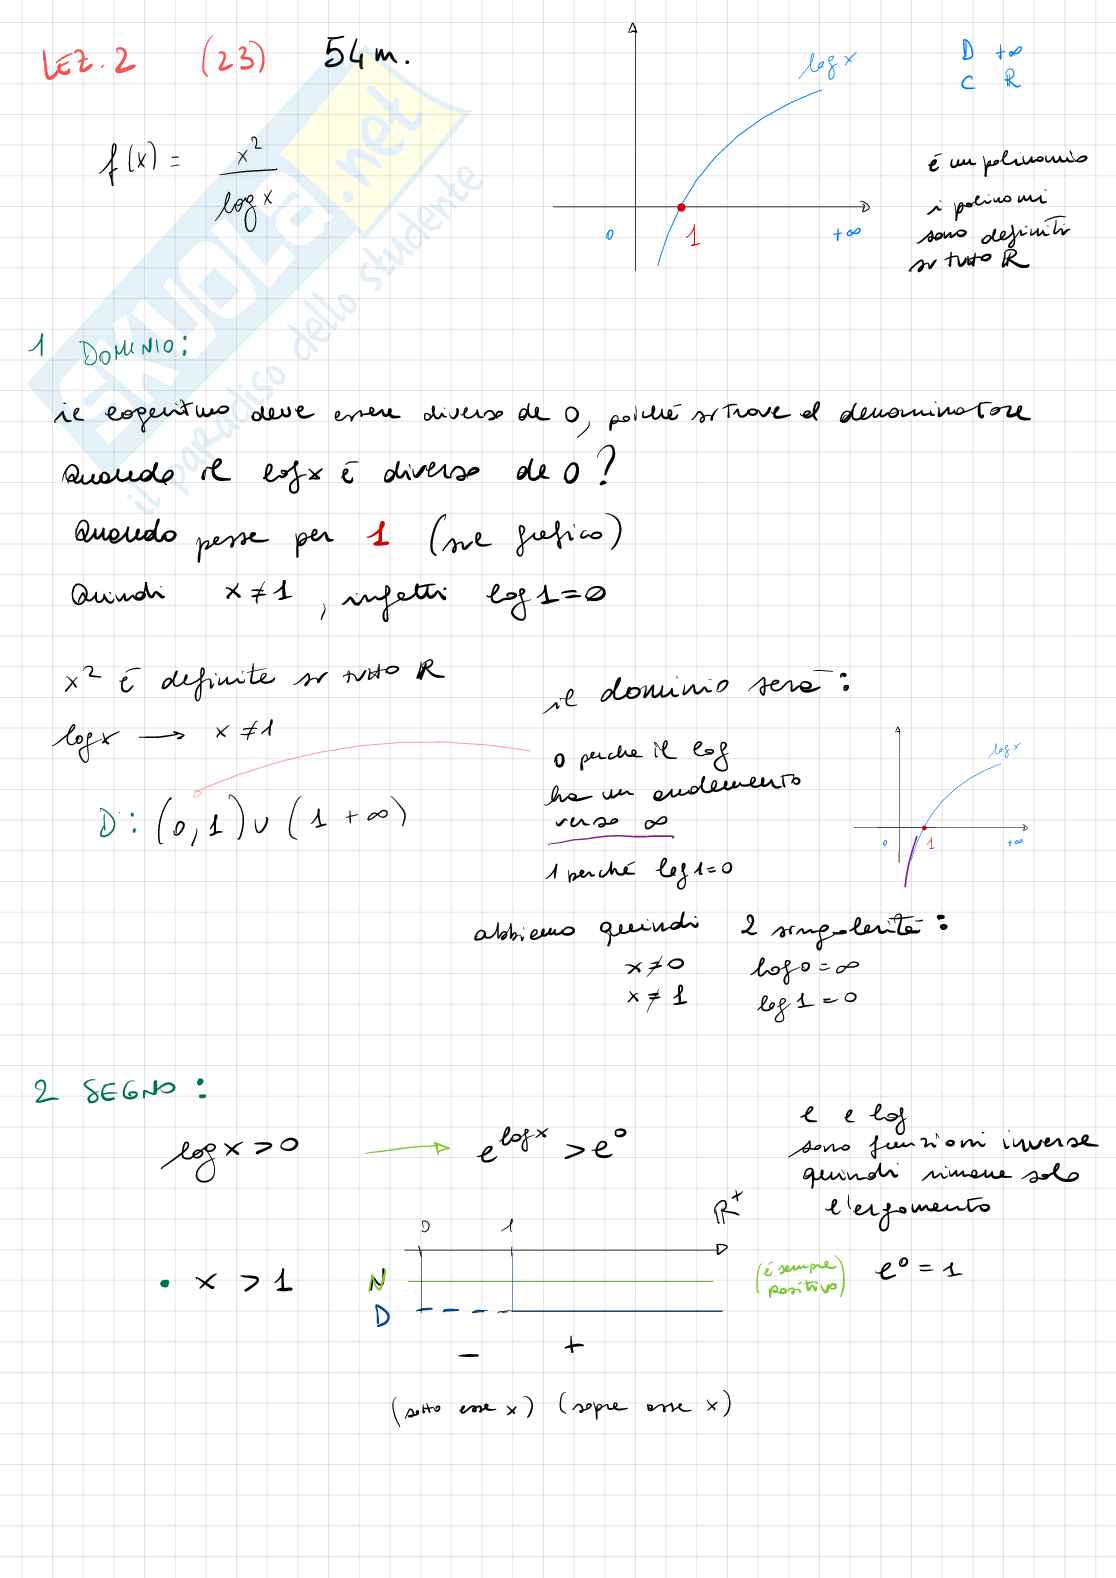 LEZ. 2 (23) 54 m.
f(x) = x² / log x
log x
0 1 +∞
D +∞
C R
é un polinomio
i polinomi
sono definiti
su tutto R
SKUOLA.net
il paradiso dello studente
1 DOMINIO:
il logaritmo deve essere diverso da 0, poiché si trova al denominatore
Quando il log x é diverso da 0?
Quando passa per 1 (sul grafico)
Quindi x ≠ 1, infatti log 1 = 0
x² é definita su tutto R
log x → x ≠ 1
D: (0,1) ∪ (1 +∞)
il dominio sarà:
0 perche il log
ha un andamento
verso ∞
1 perché log 1 = 0
log x
0 1 +∞
abbiamo quindi 2 singolarità:
x ≠ 0 log 0 = ∞
x ≠ 1 log 1 = 0
2 SEGNO:
log x > 0 → e^log x > e^0
e e log
sono funzioni inverse
quindi rimane solo
l'argomento
0 1 R⁺
• x > 1
N
(é sempre positivo)
e^0 = 1
D
- +
(sotto asse x) (sopra asse x)